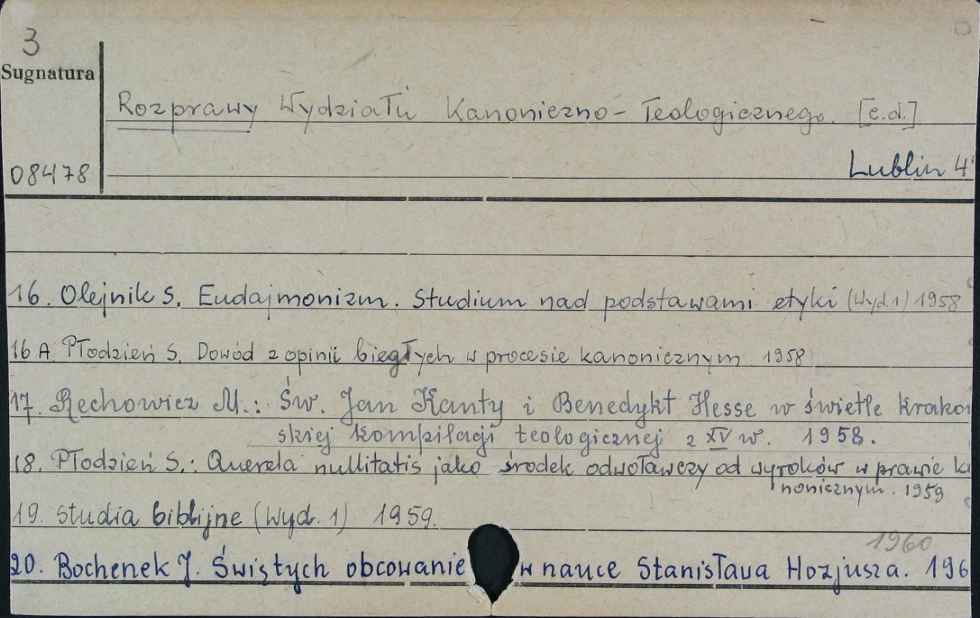 3
Sugnatura
Rozprawy Wydziału Kanoniczno-Teologicznego. [c.d.]
08478
Lublin 4°
16. Olejnik S. Eudajmonizm. Studium nad podstawami etyki (Wyd.1) 1958
16 A. Płodzień S. Dowód z opinii biegłych w procesie kanonicznym 1958
17. Rechowicz M.: Św. Jan Kanty i Benedykt Hesse w świetle krakow
skiej kompilacji teologicznej z XV w. 1958.
18. Płodzień S.: Querela nullitatis jako środek odwoławczy od wyroków w prawie ka
nonicznym. 1959
19. Studia biblijne (Wyd. 1) 1959.
1960
20. Bochenek J. Świętych obcowanie w nauce Stanisława Hozjusza. 196